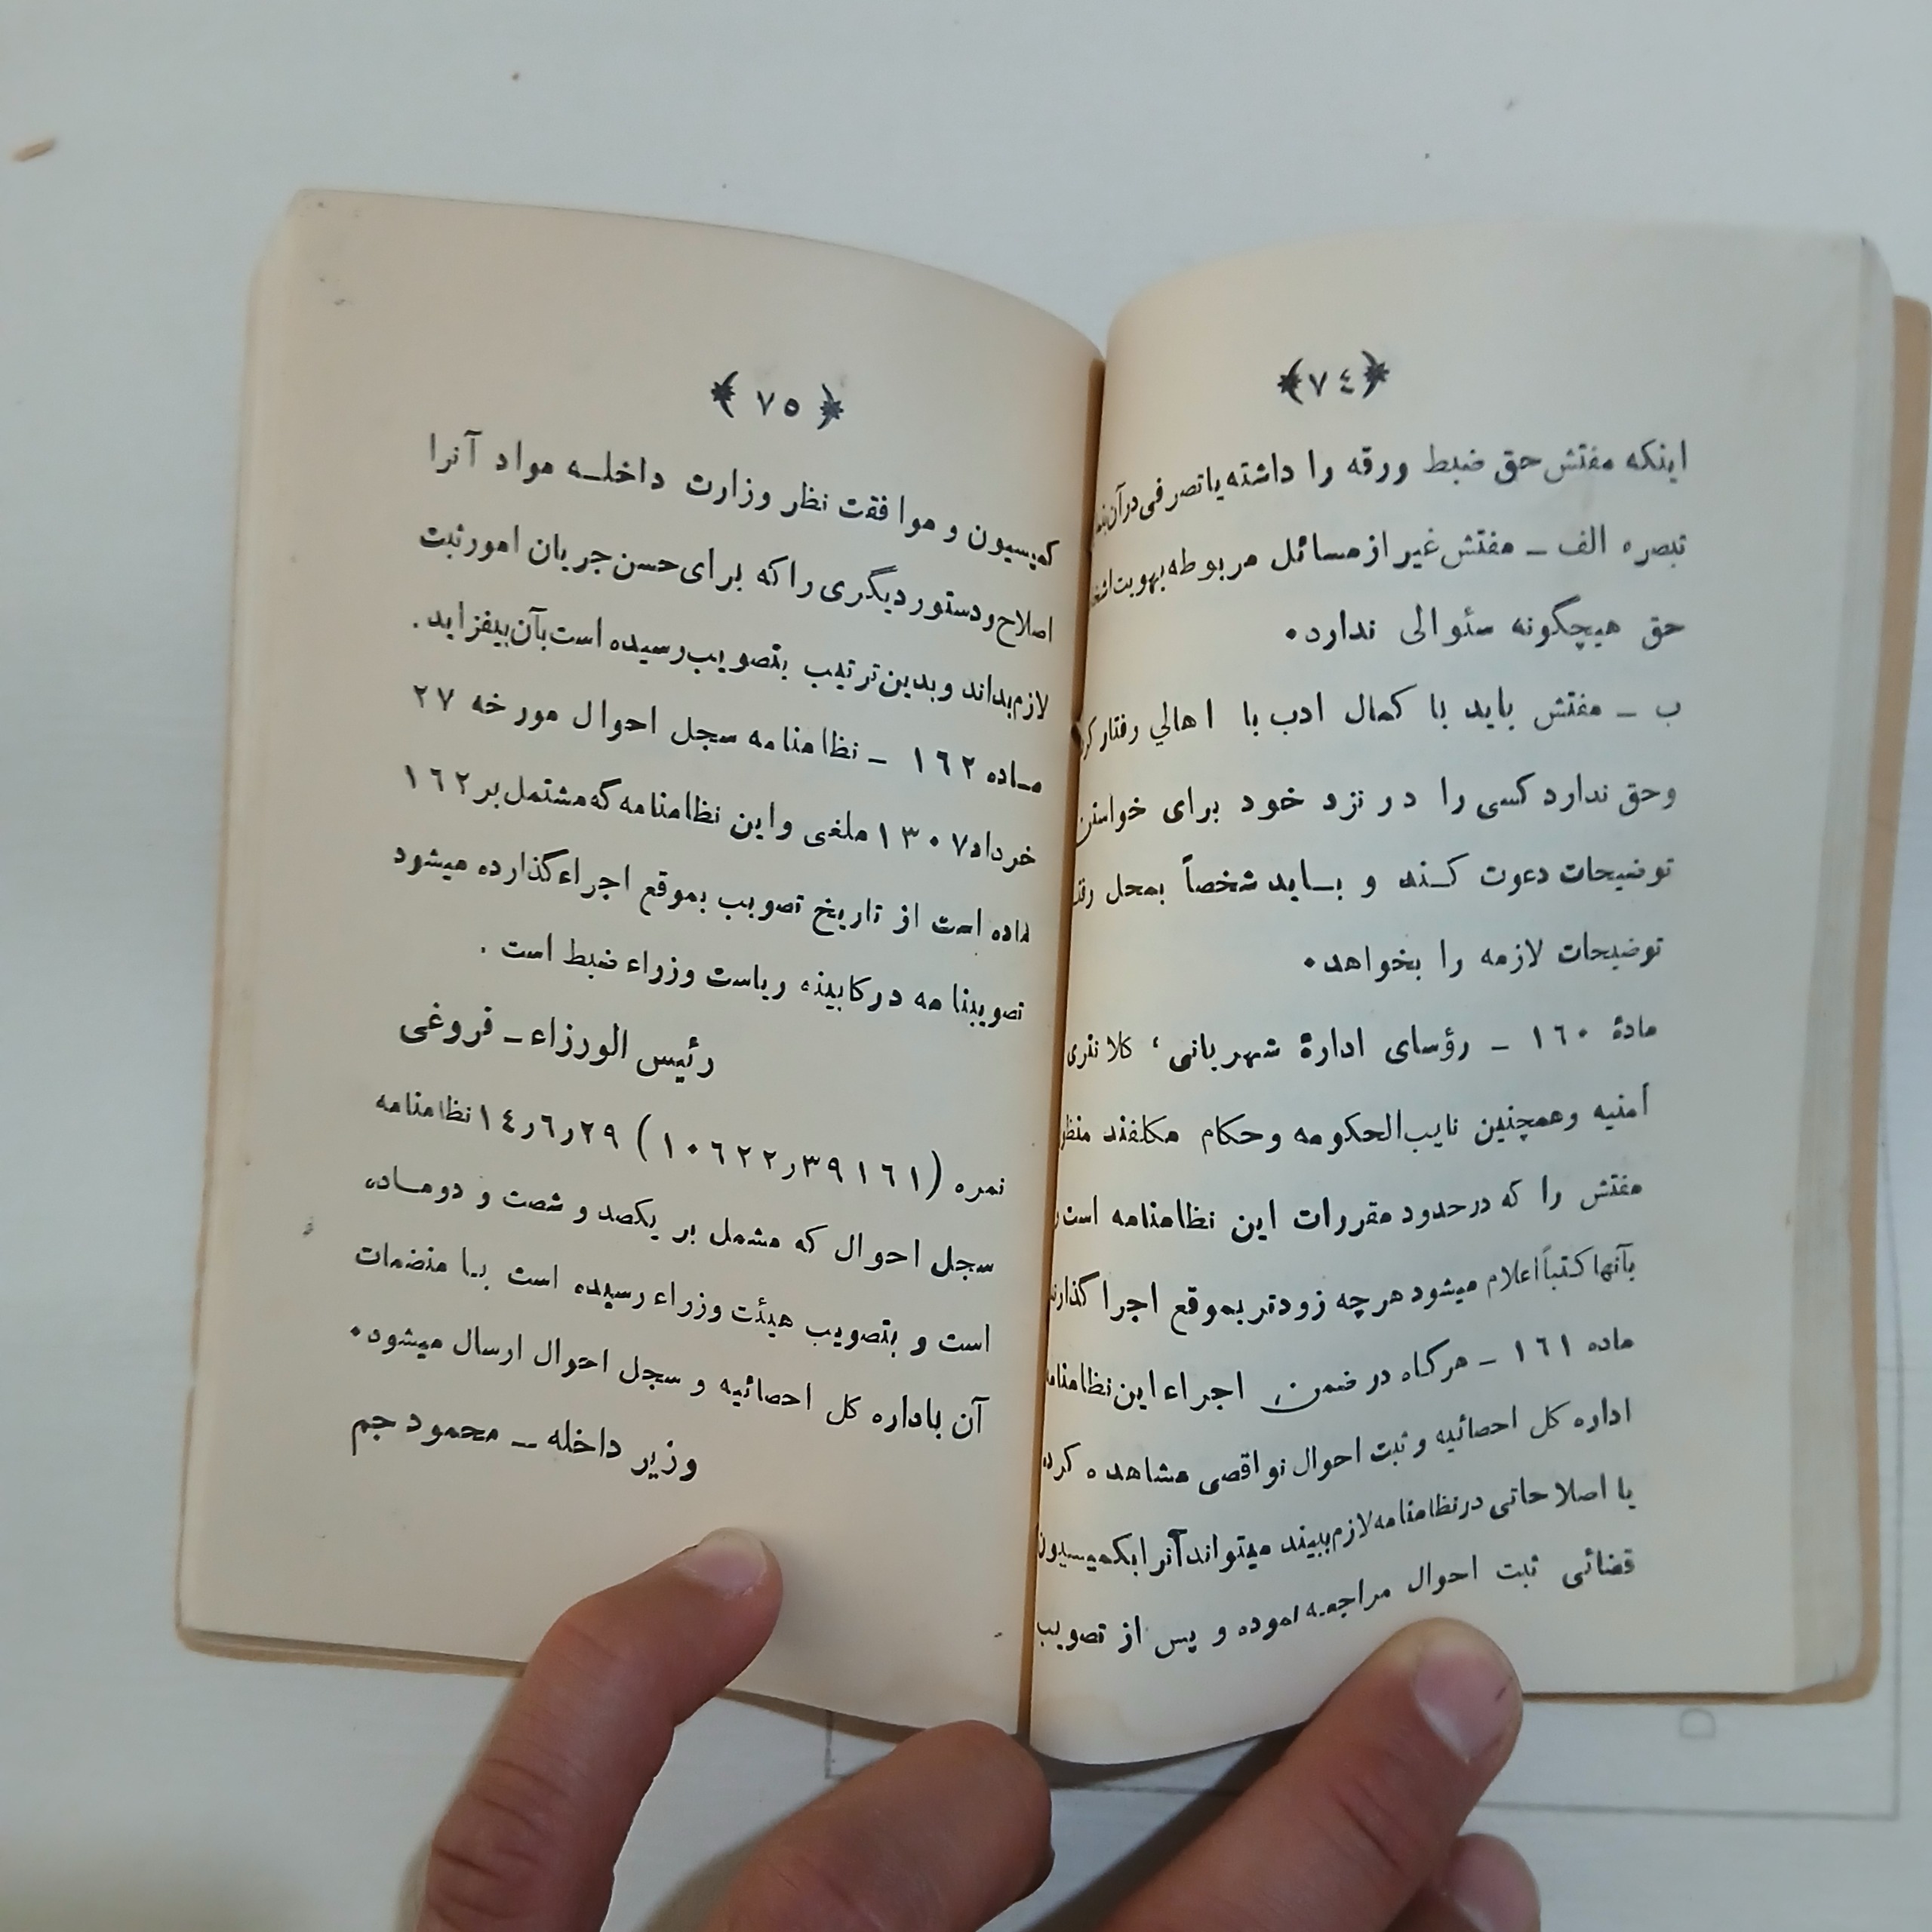 ﴿٧٤﴾
اینکه مفتش حق ضبط ورقه را داشته یا تصرفی در آن
تبصره الف ــ مفتش غیر از مسائل مربوطه بهویت
حق هیچگونه سئوالی ندارد.
ب ــ مفتش باید با کمال ادب با اهالي رفتار
وحق ندارد کسی را در نزد خود برای خواستن
توضیحات دعوت کند و باید شخصاً بمحل
توضیحات لازمه را بخواهد.
مادهٔ ١٦٠ ــ رؤسای ادارهٔ شهربانی، کلانتری
امنیه وهمچنین نایب‌الحکومه وحکام مکلفند
مفتش را که درحدود مقررات این نظامنامه است
بآنها کتباً اعلام میشود هرچه زودتر بموقع اجرا گذارند
ماده ١٦١ ــ هرگاه در ضمن اجراء این نظامنامه
اداره کل احصائیه و ثبت احوال نواقصی مشاهده کرده
یا اصلاحاتی در نظامنامه لازم ببیند میتواند آنرا بکمیسیون
قضائی ثبت احوال مراجعه نموده و پس از تصویب
﴿٧٥﴾
کمیسیون و موافقت نظر وزارت داخله مواد آنرا
اصلاح و دستور دیگری را که برای حسن جریان امور ثبت
لازم بداند و بدین ترتیب بتصویب رسیده است بآن بیفزاید.
ماده ١٦٢ ــ نظامنامه سجل احوال مورخه ٢٧
خرداد ١٣٠٧ ملغی واین نظامنامه که مشتمل بر ١٦٢
ماده است از تاریخ تصویب بموقع اجراء گذارده میشود
تصویبنامه در کابینه ریاست وزراء ضبط است.
رئیس الورزاء ــ فروغی
نمره (٣٩١٦١ر١٠٦٢٢) ٢٩ر٦ر١٤ نظامنامه
سجل احوال که مشمل بر یکصد و شصت و دوماده
است و بتصویب هیئت وزراء رسیده است با منضمات
آن باداره کل احصائیه و سجل احوال ارسال میشود.
وزیر داخله ــ محمود جم